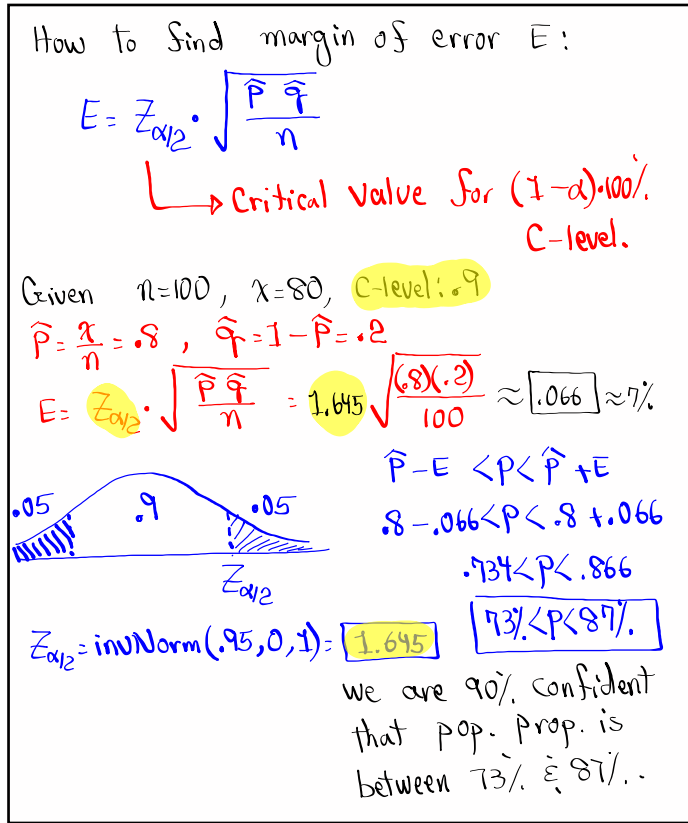 How to find margin of error E:
E = Z_{α/2} · √(p̂ q̂ / n)
→ Critical Value for (1-α)·100%
C-level.
Given n=100, x=80, C-level: .9
p̂ = x/n = .8, q̂ = 1-p̂ = .2
E = Z_{α/2} · √(p̂ q̂ / n) = 1.645 √((.8)(.2) / 100) ≈ .066 ≈ 7%
.05 .9 .05
Z_{α/2}
Z_{α/2} = invNorm(.95,0,1) = 1.645
p̂-E < P < p̂+E
.8-.066<P<.8+.066
.734<P<.866
73%<P<87%.
we are 90% confident
that pop. prop. is
between 73% & 87%.